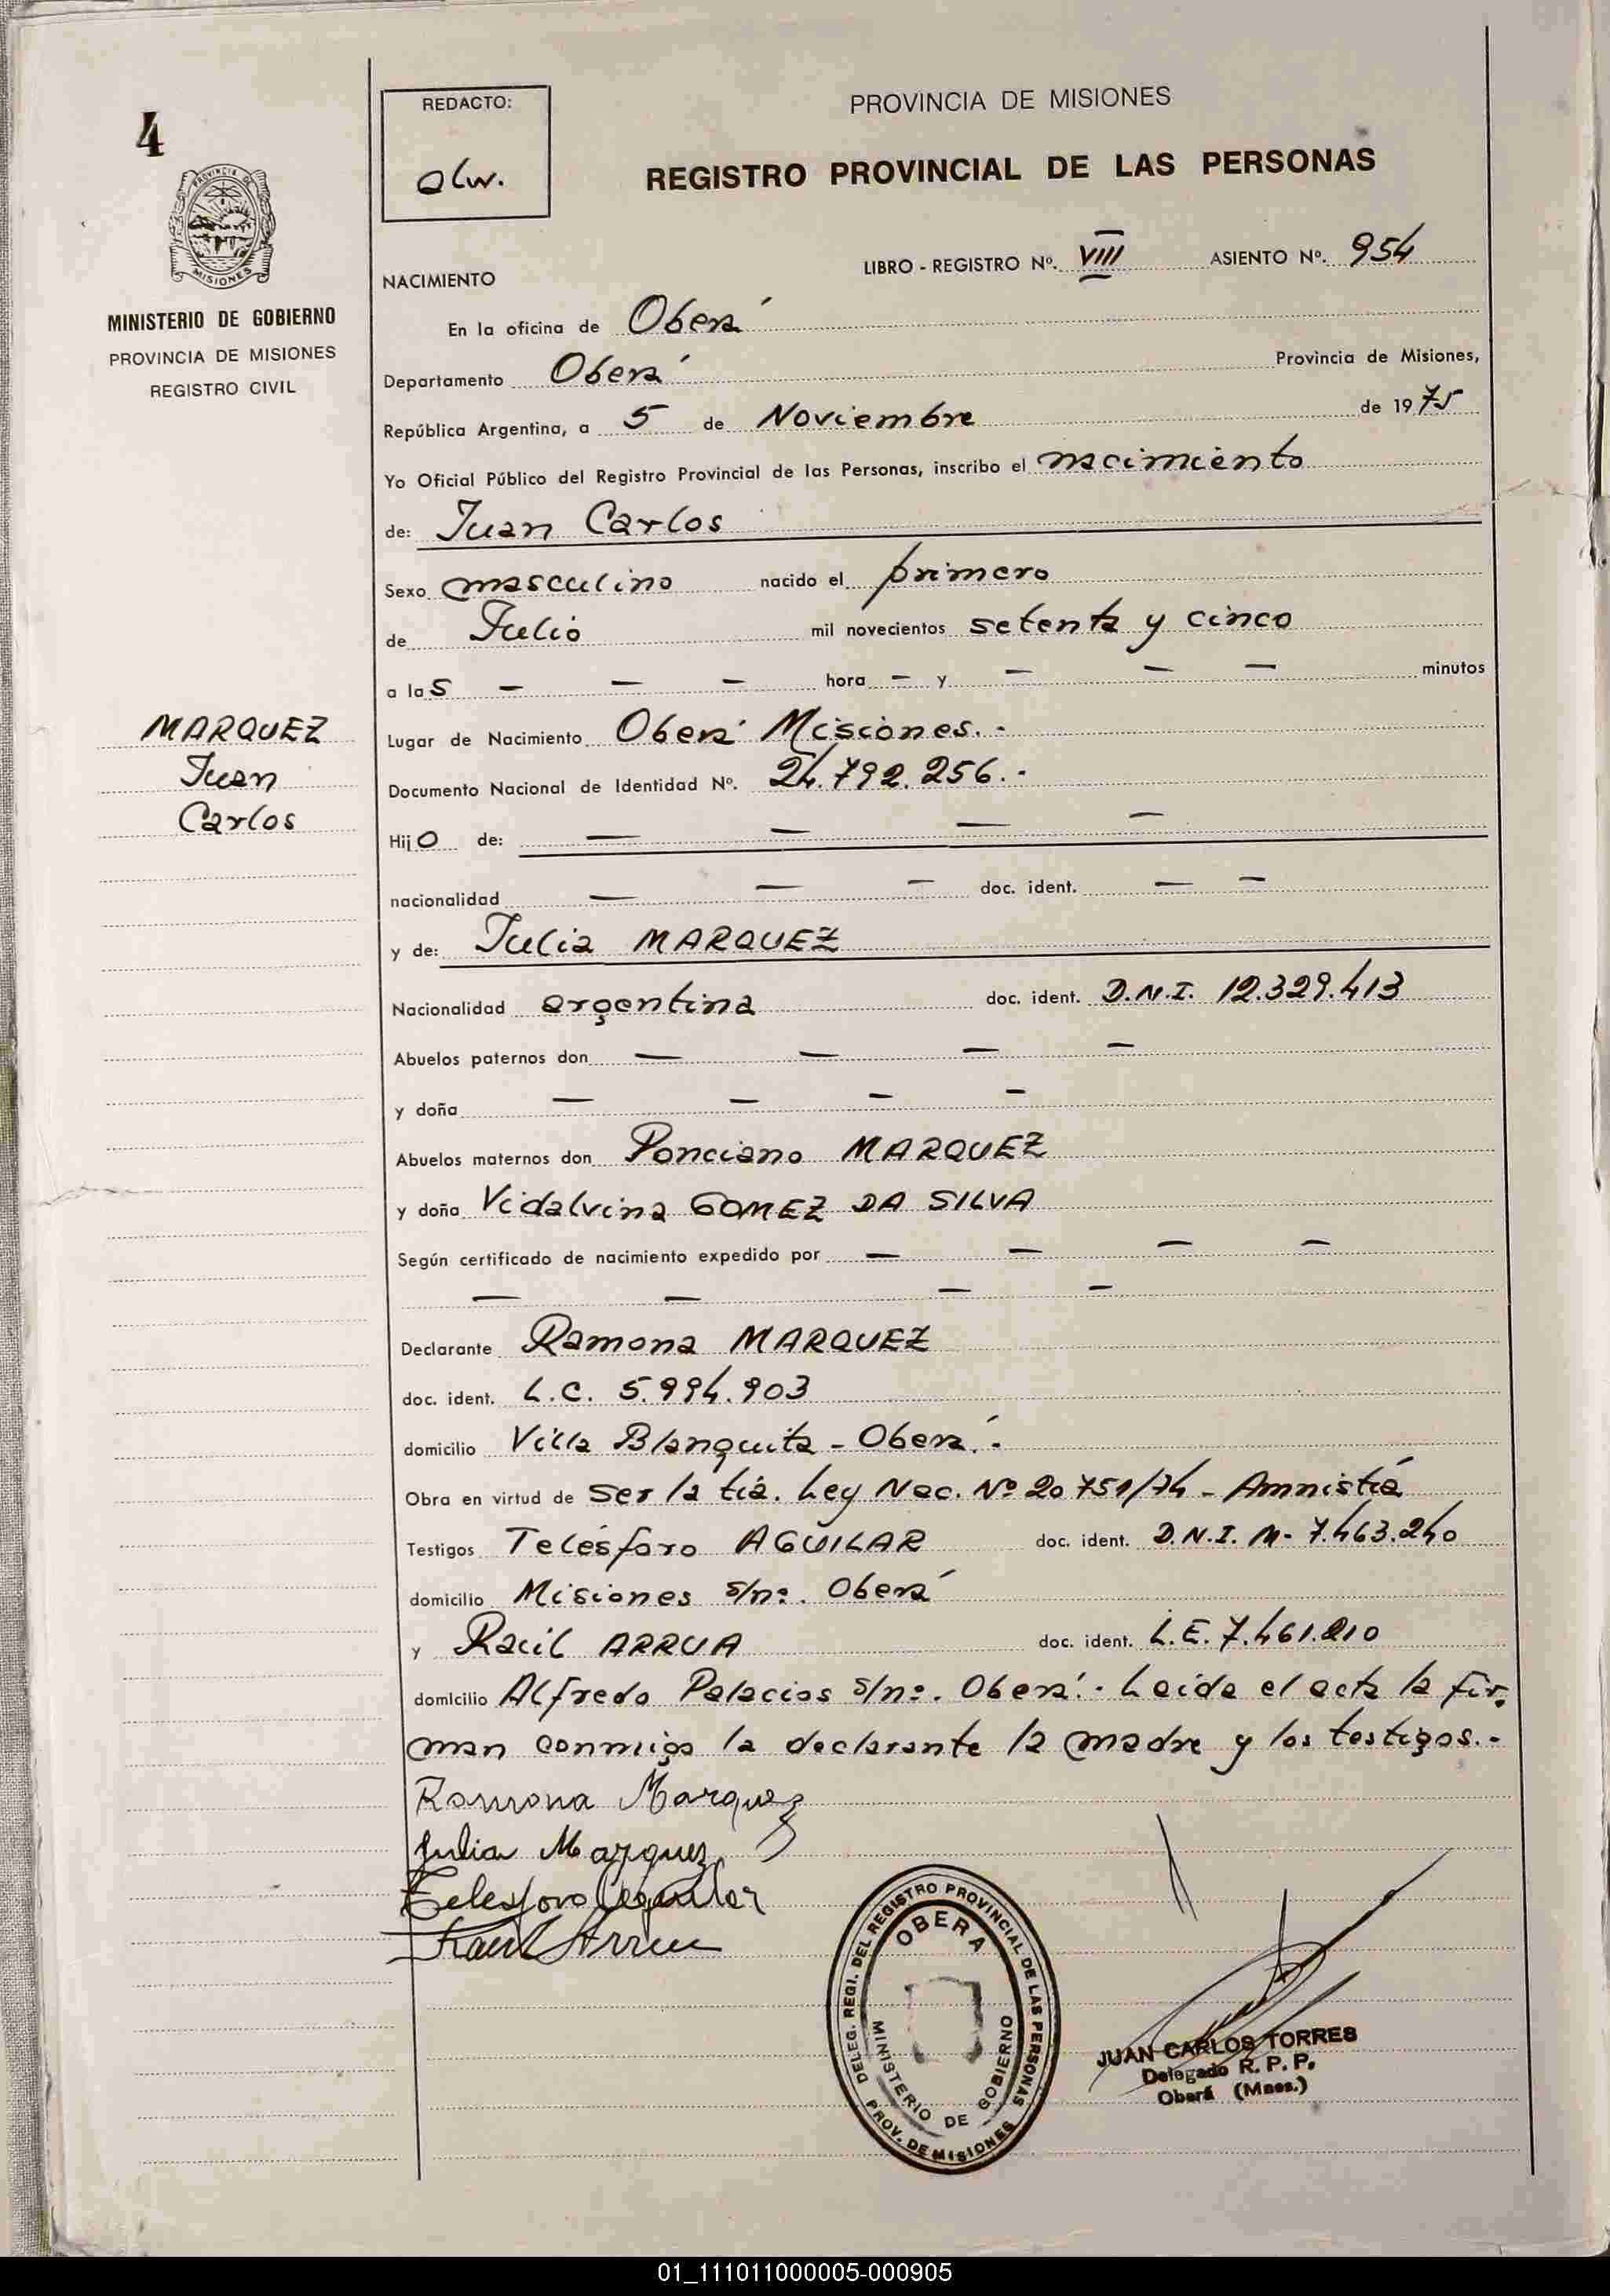 4
PROVINCIA DE
MISIONES
MINISTERIO DE GOBIERNO
PROVINCIA DE MISIONES
REGISTRO CIVIL
REDACTO:
olw.
PROVINCIA DE MISIONES
REGISTRO PROVINCIAL DE LAS PERSONAS
LIBRO - REGISTRO Nº. VIII ASIENTO Nº. 954
NACIMIENTO
En la oficina de Oberá
Departamento Oberá Provincia de Misiones,
República Argentina, a 5 de Noviembre de 1975
Yo Oficial Público del Registro Provincial de las Personas, inscribo el nacimiento
de: Juan Carlos
Sexo masculino nacido el primero
de Julio mil novecientos setenta y cinco
a las — — — hora — y — — — minutos
MARQUEZ
Juan
Carlos
Lugar de Nacimiento Oberá Misiones.-
Documento Nacional de Identidad Nº. 24.792.256.-
Hijo de: — — — —
nacionalidad — — — doc. ident. — —
y de: Julia MARQUEZ
Nacionalidad argentina doc. ident. D.N.I. 12.329.413
Abuelos paternos don — — — —
y doña — — — —
Abuelos maternos don Ponciano MARQUEZ
y doña Vidalvina GOMEZ DA SILVA
Según certificado de nacimiento expedido por — — — —
— — — —
Declarante Ramona MARQUEZ
doc. ident. L.C. 5.994.903
domicilio Villa Blanquita - Oberá.-
Obra en virtud de ser la tía. Ley Nac. Nº 20751/74 - Amnistía
Testigos Telésforo AGUILAR doc. ident. D.N.I. M- 7.463.240
domicilio Misiones s/nº. Oberá
y Raúl ARRUA doc. ident. L.E. 7.461.210
domicilio Alfredo Palacios s/nº. Oberá.- Leída el acta la fir-
man conmigo la declarante la madre y los testigos.-
Ramona Marquez
Julia Marquez
Telesforo Aguilar
Raul Arrua
DELEG. REGI. DEL REGISTRO PROVINCIAL DE LAS PERSONAS
OBERA
MINISTERIO DE GOBIERNO
PROV. DE MISIONES
JUAN CARLOS TORRES
Delegado R. P. P.
Oberá (Mnes.)
01_111011000005-000905